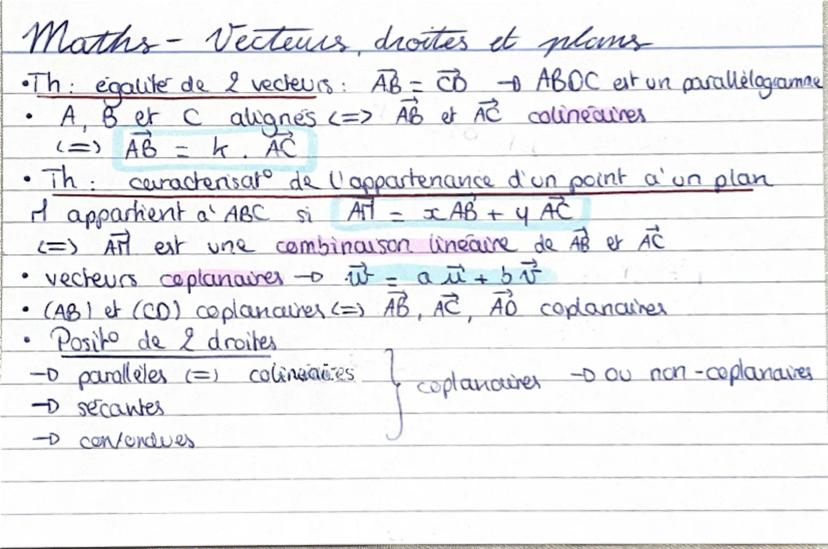 Maths - Vecteurs, droites et plans
•Th: égalité de 2 vecteurs: \vec{AB} = \vec{CD} → ABDC est un parallélogramme
• A, B et C alignés <=> \vec{AB} et \vec{AC} colinéaires
<=> \vec{AB} = k . \vec{AC}
• Th: caractérisat° de l'appartenance d'un point à un plan
M appartient à ABC si \vec{AM} = x\vec{AB} + y\vec{AC}
<=> \vec{AM} est une combinaison linéaire de \vec{AB} et \vec{AC}
• vecteurs coplanaires → \vec{w} = a\vec{u} + b\vec{v}
• (AB) et (CD) coplanaires <=> \vec{AB}, \vec{AC}, \vec{AD} coplanaires
• Posit° de 2 droites
→ parallèles <=> colinéaires
→ sécantes } coplanaires → ou non-coplanaires
→ confondues